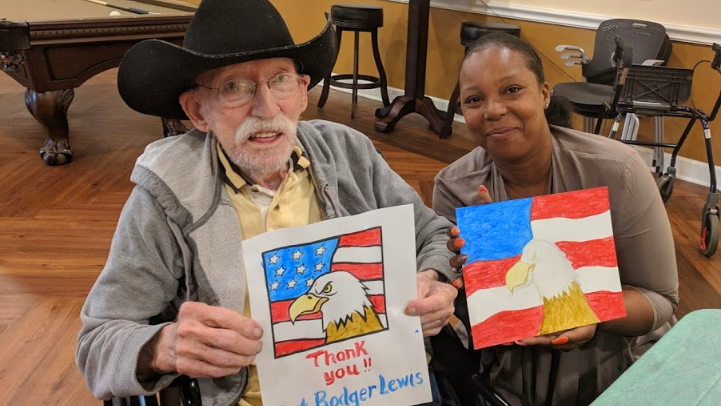 Thank
you!!
Bodger Lewis